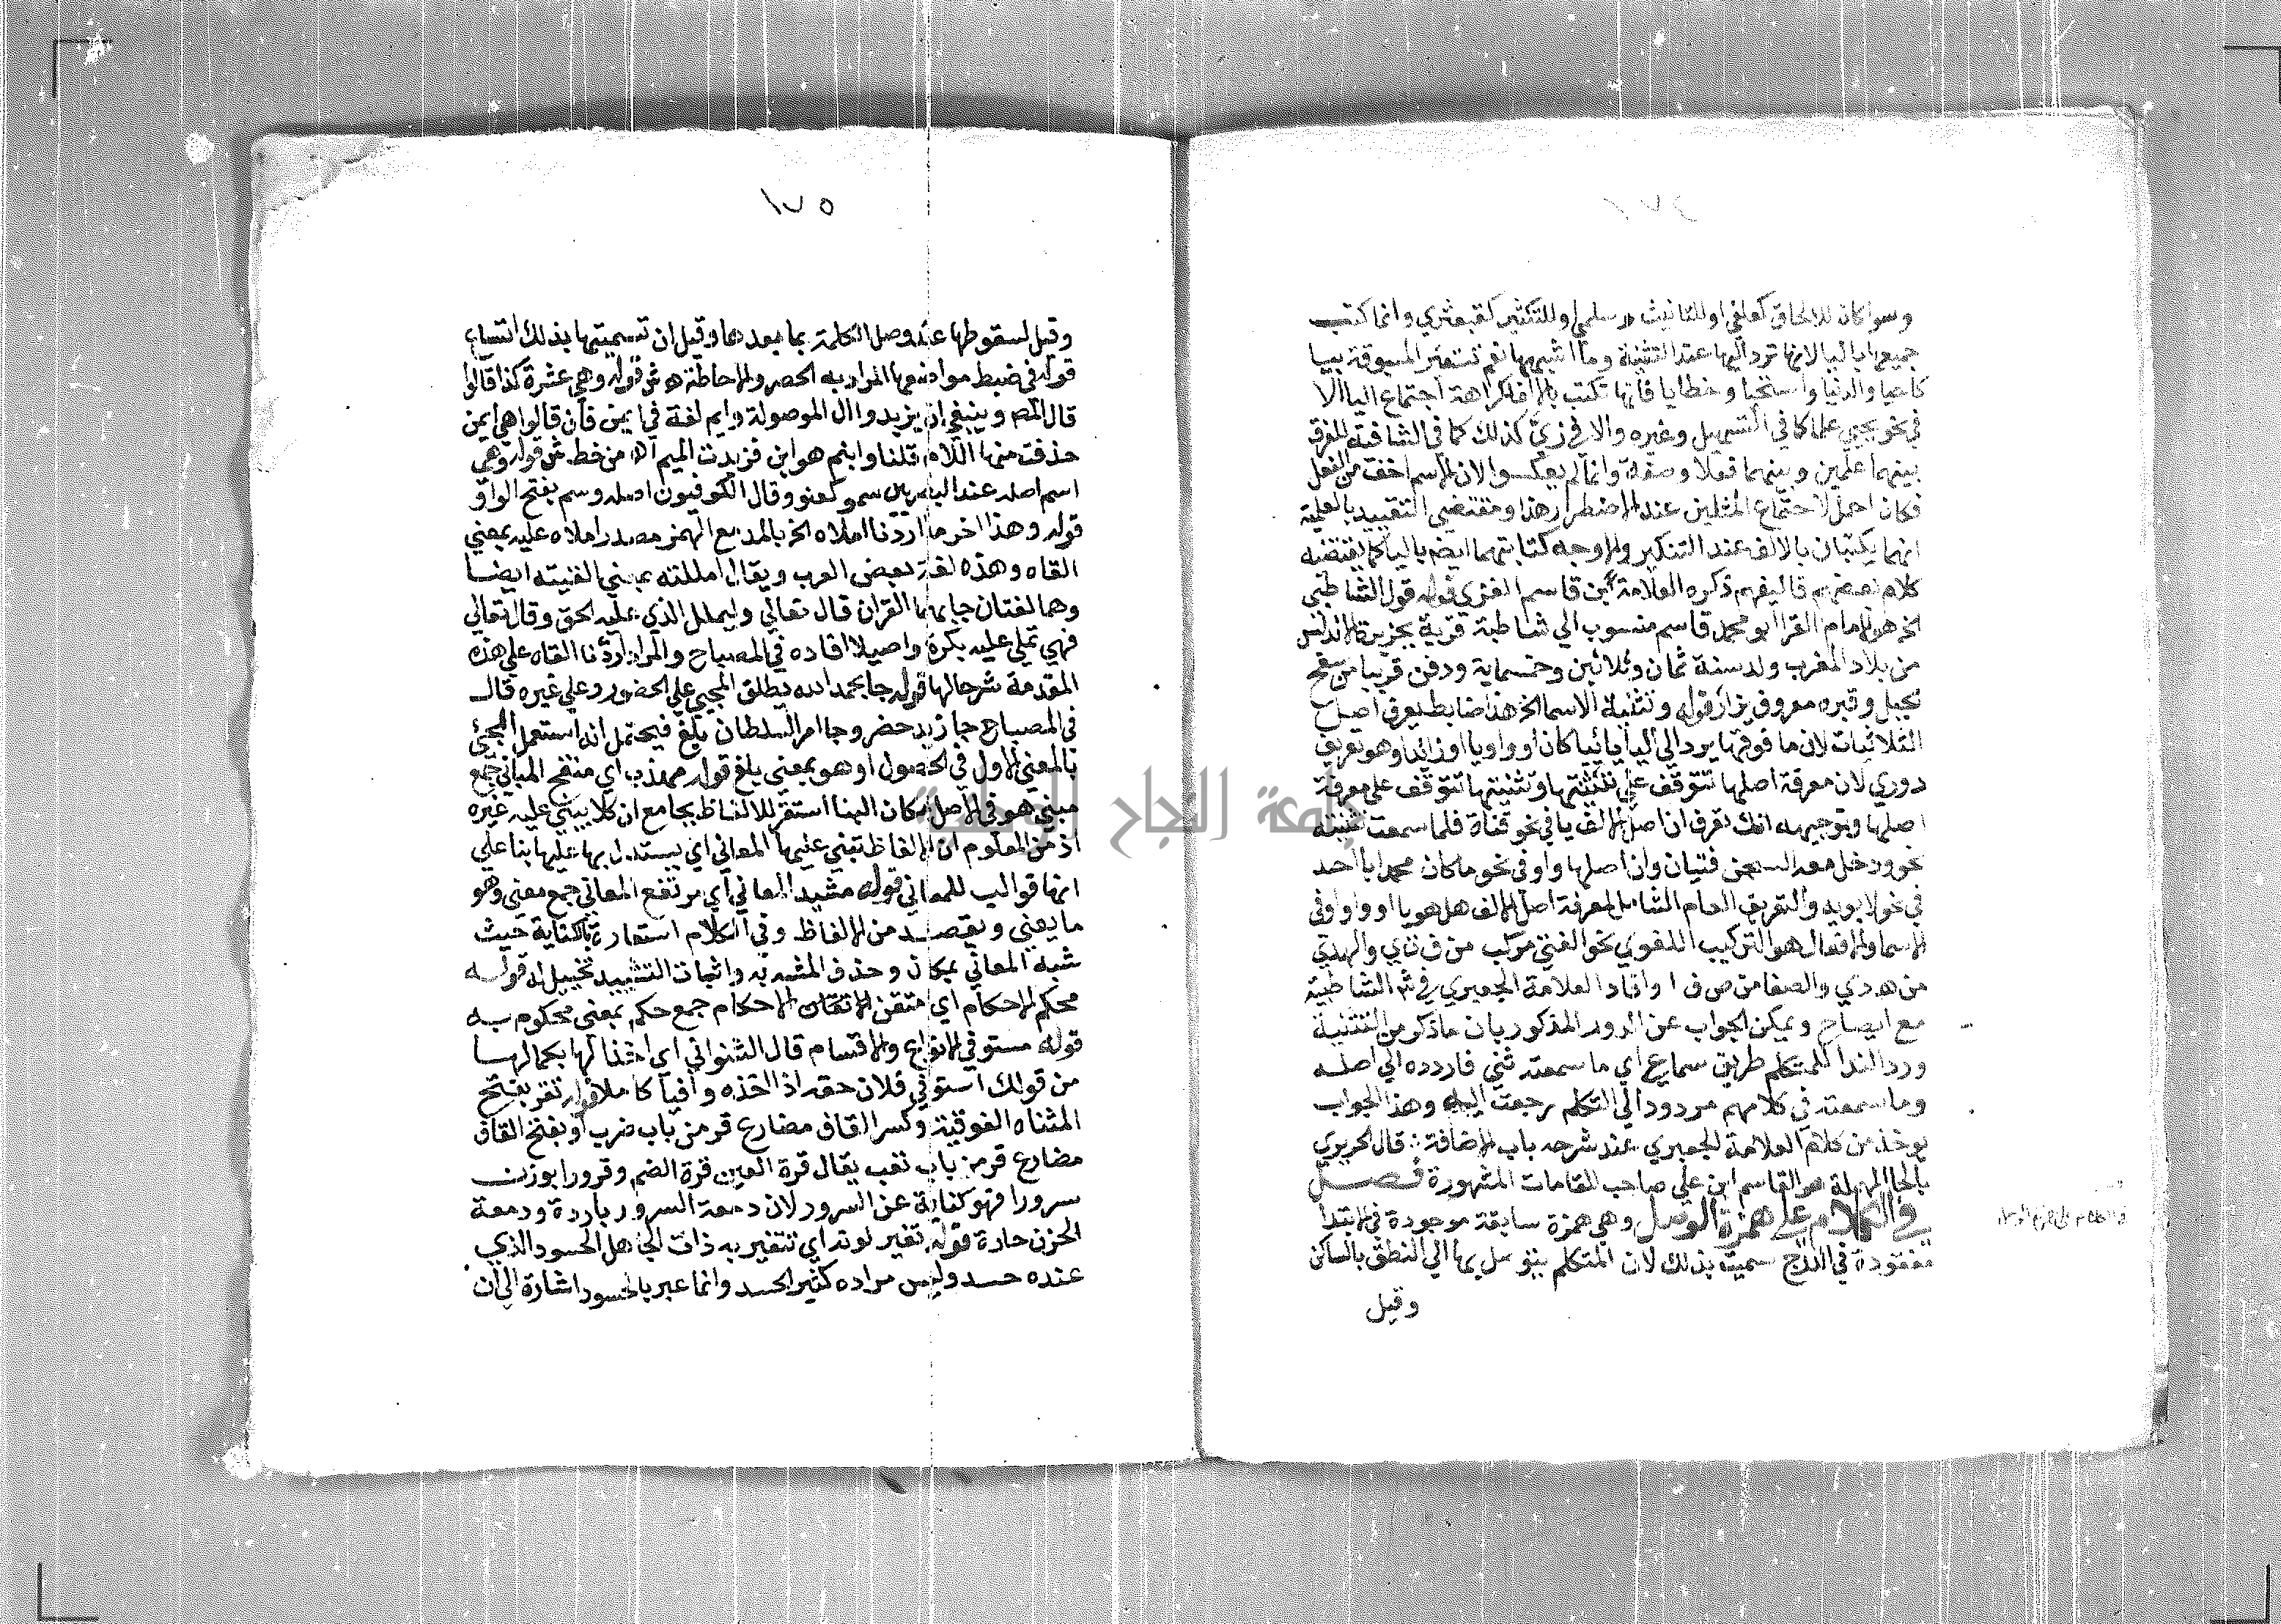 ١٧٤
وسوا كان للالحاق كعلقي او للتانيث كسلمي او للتكثير كقبعثري وانما كتب
جميعها باليا لانها ترد اليها عند التثنية وما اشبهها نعم تستثني المسبوقة بيا
كاحيا والدنيا واستحيا وخطايا فانها تكتب بالالف لكراهة اجتماع اليا الا
في نحو يحيي علما كما في التسهيل وغيره والا في زيي كذلك كما في الشافية للفرق
بينهما علمين وبينهما فعلا وصفة وانما لم يعكسوا لان الاسم اخف من الفعل
فكان احمل لاجتماع المثلين عند الاضطرار هذا ومقتضي التقييد بالعلمية
انهما يكتبان بالالف عند التنكير والاوجه كتابتهما ايضم باليا كما يقتضيه
كلام بعضهم فاليفهم ذكره العلامة ابن قاسم الغزي قوله قول الشاطبي
الخ هو الامام القرا ابو محمد قاسم منسوب الي شاطبة قرية بجزيرة الاندلس
من بلاد المغرب ولد سنة ثمان وثلاثين وخمسماية ودفن قريبا من سفح
جبل وقبره معروف يزار قوله وتثنية الاسما الخ هذا ضابط يعرف اصل
الثلاثيات لان ما فوقها يرد الي اليا يائيا كان او واويا او زائدا وهو تعريف
دوري لان معرفة اصلها تتوقف علي تثنيتها وتثنيتها تتوقف علي معرفة
اصلها وتوجيهه انك تعرف ان اصل الالف يا في نحو فتاة فلما سمعت تثنيته
نحو ودخل معه السجن فتيان وان اصلها واو في نحو ما كان محمد ابا احد
في نحو لابويه والتعريف العام الشامل لمعرفة اصل الالف هل هو يا او واو في
الاسما والافعال هو التركيب اللغوي نحو الفتي مركب من ف ت ي والهدي
من ه د ي والصفا من ص ف ا وافاد العلامة الجعبري في شم الشاطبية
مع ايضاح ويمكن الجواب عن الدور المذكور بان ماذكر من التثنية
ورد الندا للمتكلم طريق سماع اي ما سمعته ثني فاردده الي اصله
وما سمعته في كلامهم مردودا الي التكلم رجعت اليه وهذا الجواب
يوخذ من كلام العلامة الجعبري عند شرحه باب الاضافة قال الحريري
بالحا المهملة هو القاسم ابن علي صاحب المقامات المشهورة فصل
في الكلام علي همزة الوصل وهي همزة سابقة موجودة في الابتدا
مفقودة في الدرج سميت بذلك لان المتكلم يتوصل بها الي النطق بالساكن
وقيل
١٧٥
وقيل لسقوطها عند وصل الكلمة بما بعدها وقيل ان تسميتها بذلك اتساع
قوله في ضبط مواضعها المراد به الحصر والاحاطة ه ش قوله وهي عشرة كذا قالوا
قال المم وينبغي ان يزيدوا ال الموصولة وايم لغة في ايمن فان قالوا هي ايمن
حذفت منها اللام قلنا وابنم هو ابن فزيدت الميم اه من خط ش قوله وهي
اسم اصله عند البصريين سمو كعنو وقال الكوفيون اصله وسم بفتح الواو
قوله وهذا اخر ما اردنا املاه الخ بالمد مع الهمز مصدر املاه عليه بمعني
القاه وهذه لغة بعض العرب ويقال امللته بمعني القيته ايضا
وهما لغتان جا بهما القران قال تعالي وليملل الذي عليه الحق وقال تعالي
فهي تملي عليه بكرة واصيلا افاده في المصباح والمراد اردنا القاه علي هذه
المقدمة شرحا لها قوله جا بحمد الله يطلق المجيي علي الحضور وعلي غيره قال
في المصباح جا زيد حضر وجا امر السلطان بلغ فيحتمل انه استعمل المجيئ
بالمعني الاول في الحصول او هو بمعني بلغ قوله مهذب اي منقح المباني جمع
مبني هو في الاصل مكان البنا استقر للالفاظ بجامع ان كلا يبتني عليه غيره
اذ من المعلوم ان الالفاظ تبني عليها المعاني اي يستدل بها عليها بنا علي
انها قوالب للمعاني قوله مشيد المعاني اي مرتفع المعاني جمع معني وهو
ما يعني ويقصد من الالفاظ وفي الكلام استعارة بالكناية حيث
شبه المعاني بمكان وحذف المشبه به واثبات التشييد تخييل له قوله
محكم الاحكام اي متقن الاتقان الاحكام جمع حكم بمعني محكوم به
قوله مستوفي الانواع والاقسام قال الشنواني اي اخذا لها بكمالها
من قولك استوفي فلان حقه اذا اخذه وافيا كاملا قوله تقر بفتح
المثناه الفوقية وكسر القاف مضارع قر من باب ضرب او بفتح القاف
مضارع قر من باب تعب يقال قرة العين قرة الضم وقرورا بوزن
سرورا فهو كناية عن السرور لان دمعة السرور باردة ودمعة
الحزن حارة قوله تغير لونه اي تتغير به ذات الجاهل الحسود الذي
عنده حسد وليس مراده كثير الحسد وانما عبر بالحسود اشارة الي ان
جامعة النجاح الوطنية